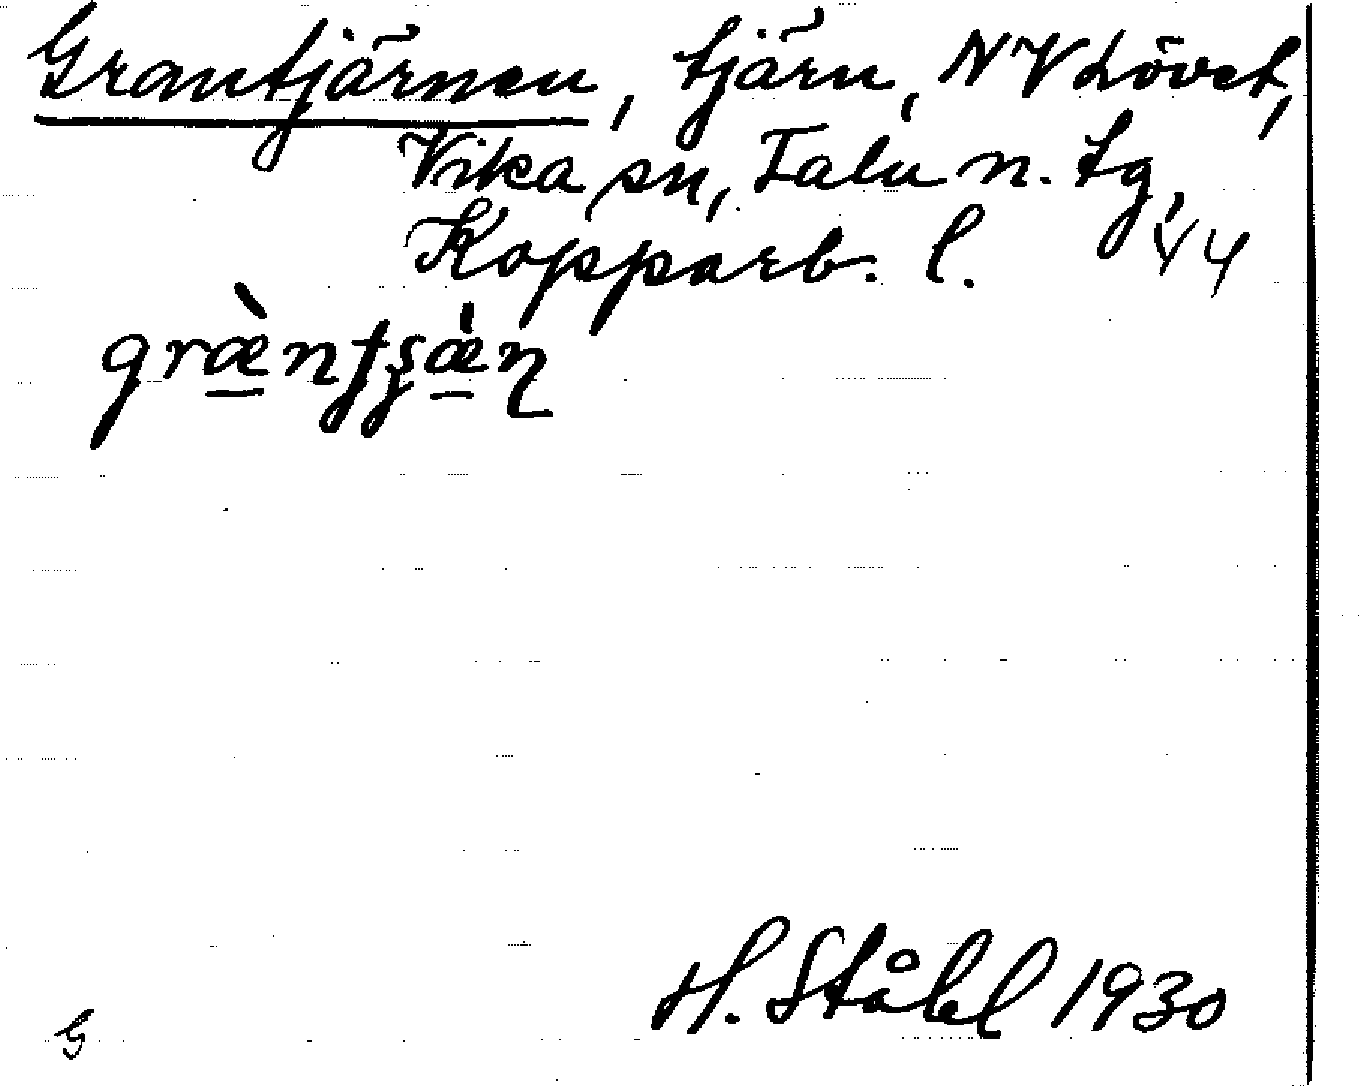 Grantjärnen, tjärn, NV Lövet,
Vika sn, Falu n. tg,
Kopparb. l. 44
H. Ståhl 1930
G